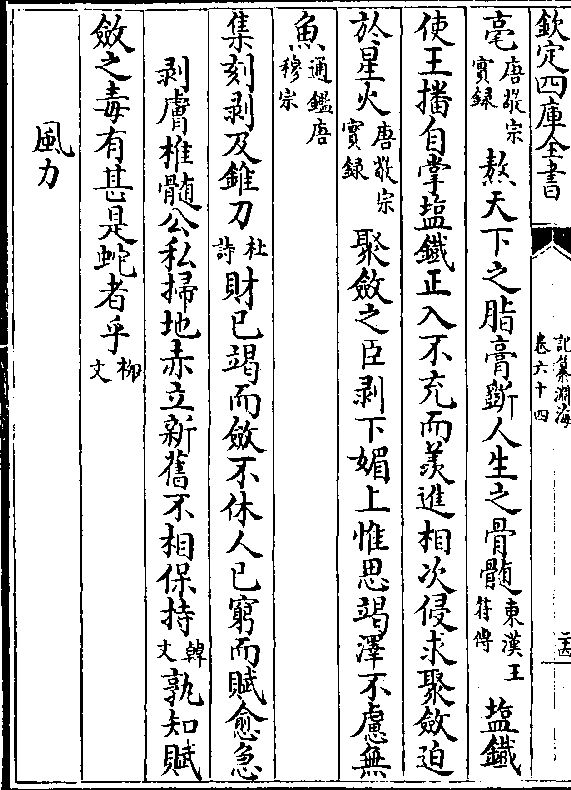 欽定四庫全書
記纂淵海
卷六十四
毫唐敬宗實録熬天下之脂膏斵人生之骨髓東漢王符傳塩鐵
使王播自掌塩鐵正入不充而羨進相次侵求聚斂迫
於星火唐敬宗實録聚斂之臣剥下媚上惟思竭澤不慮無
魚通鑑唐穆宗
集刻剥及錐刀杜詩財已竭而斂不休人已窮而賦愈急
剥膚椎髓公私掃地赤立新舊不相保持韓文孰知賦
斂之毒有甚是蛇者乎柳文
風力